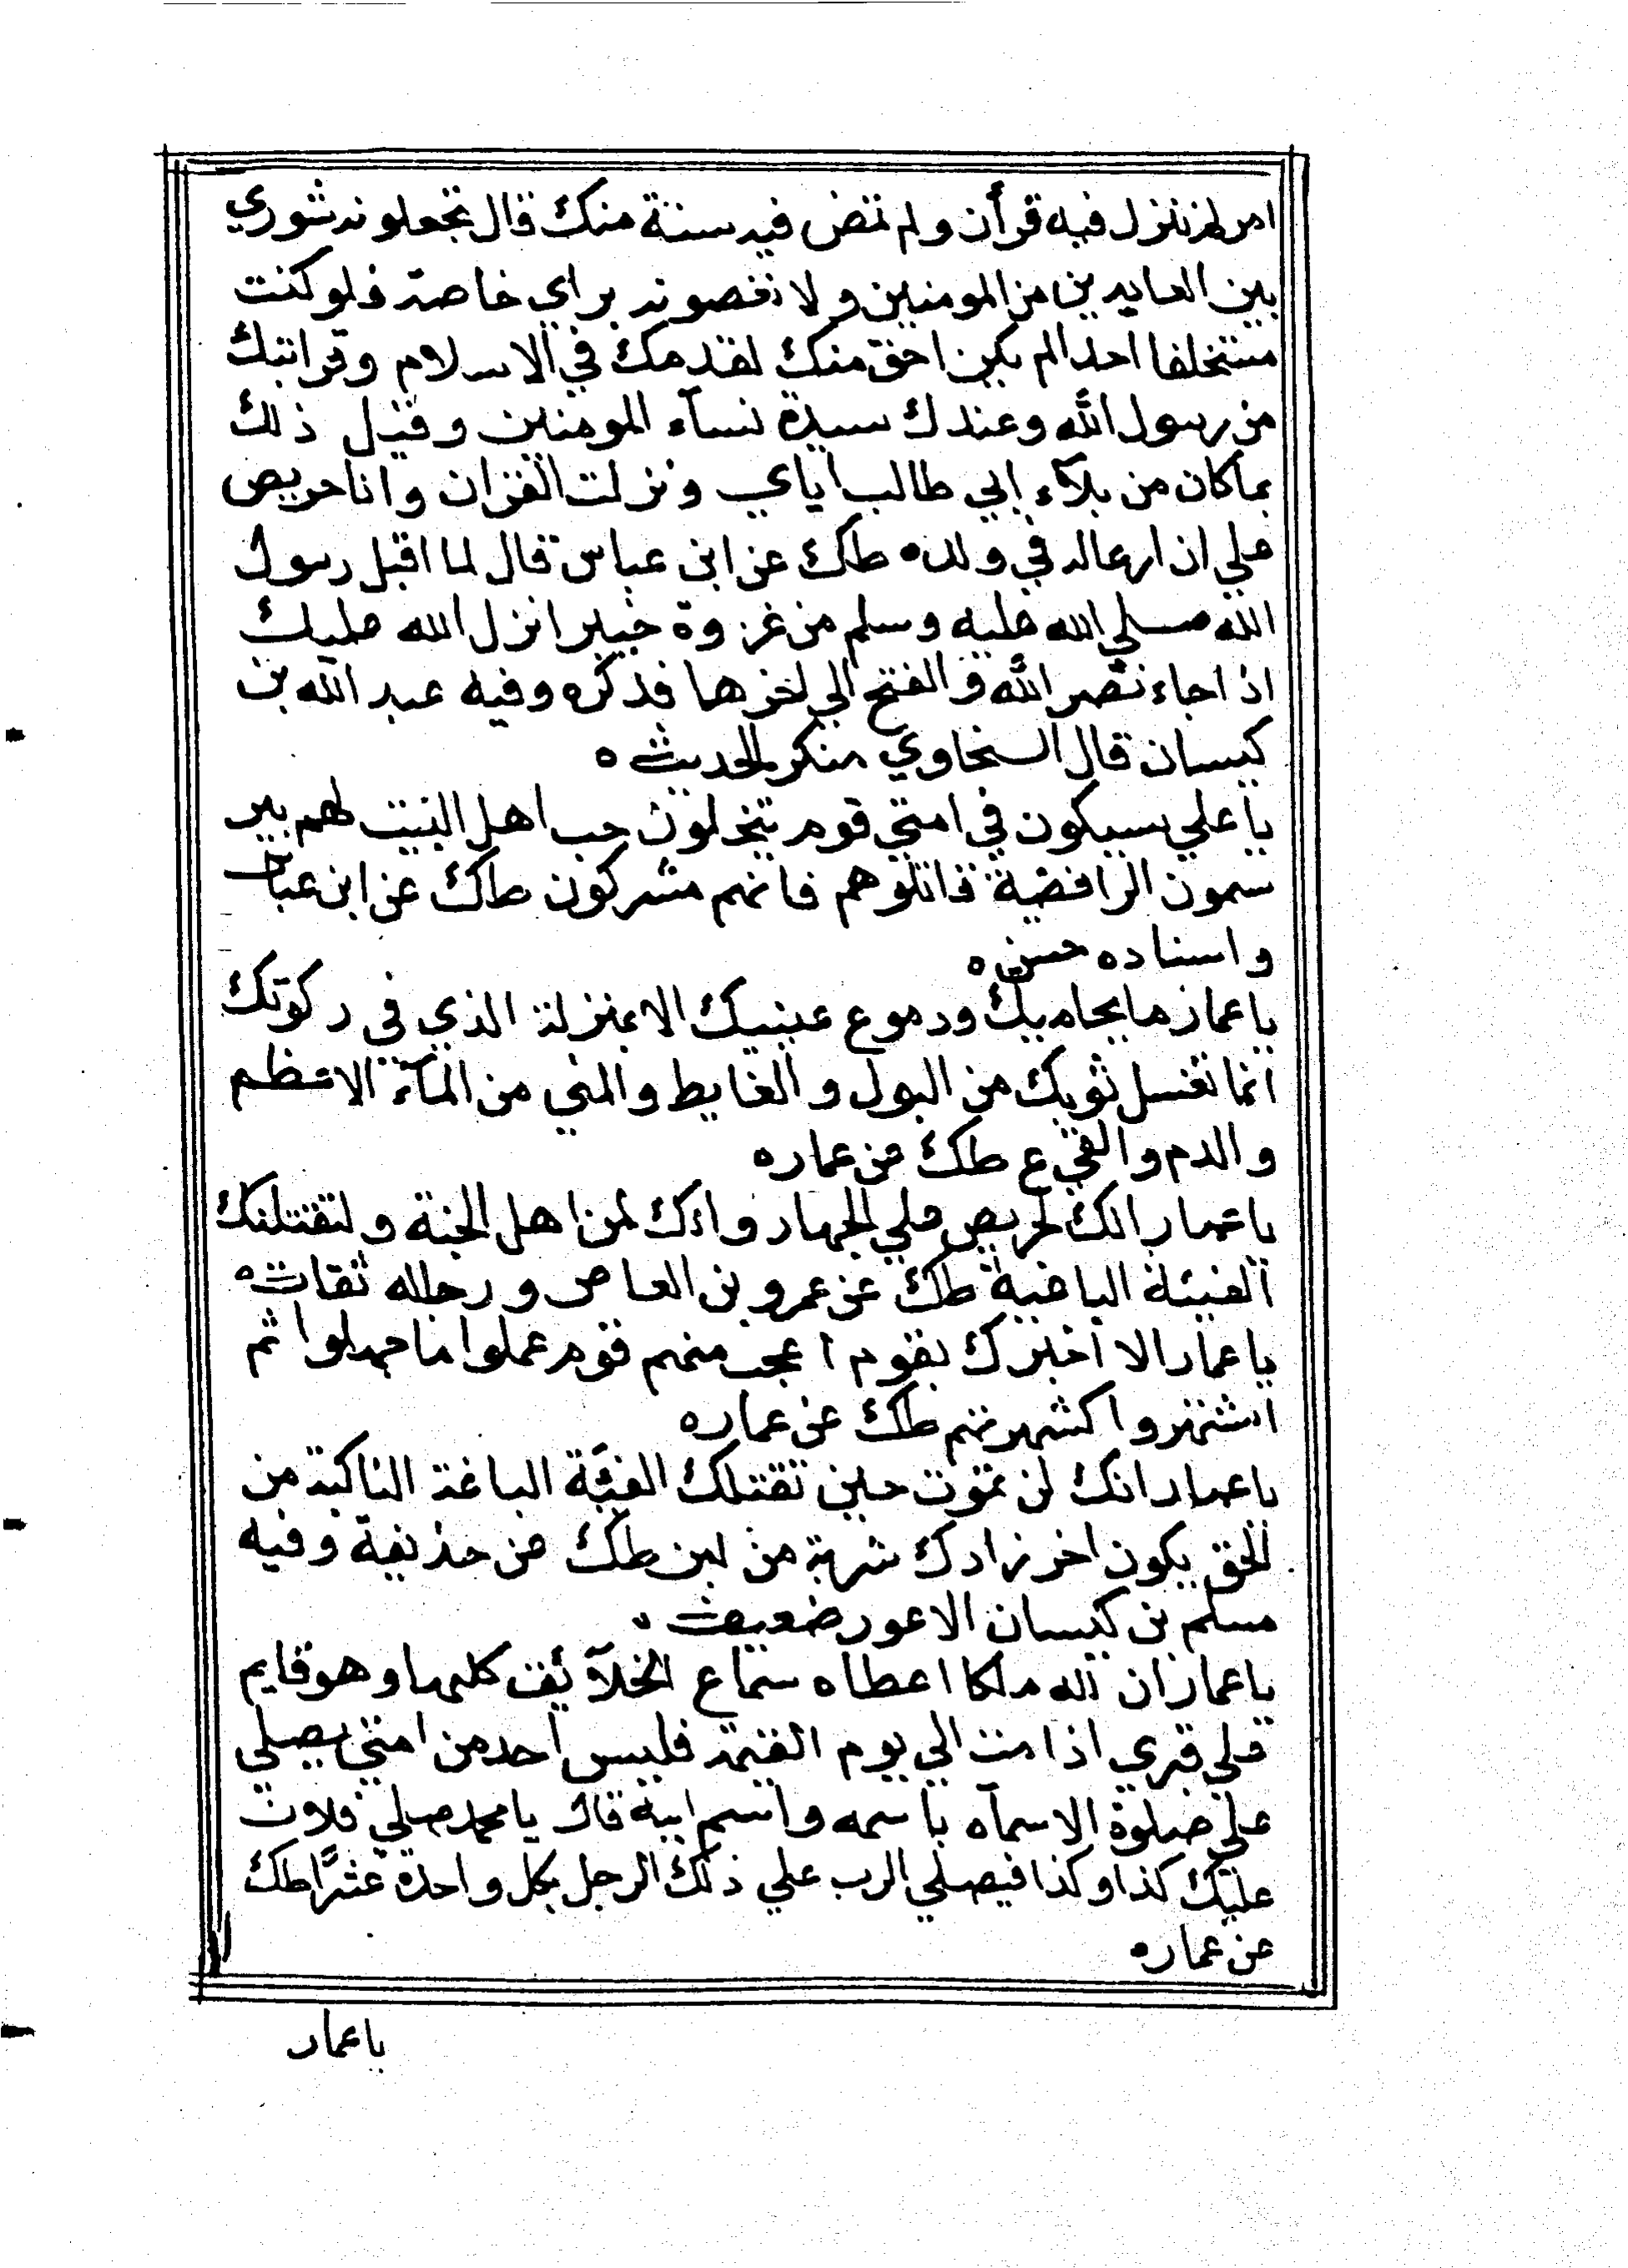 امر لم ينزل فيه قرأن ولم تمض فيه سنة منك قال تجعلونه شوري
بين العابدين من المومنين ولا تقصونه براي خاصة فلو كنت
مستخلفا احدا لم يكن احق منك لقدمك في الاسلام وقرابتك
من رسول الله وعندك سيدة نسآء المومنين وقبل ذلك
بما كان من بلآء ابي طالب اياي ونزلت القران وانا حريص
علي ان ارعاله في ولده طك عن ابن عباس قال لما اقبل رسول
الله صلي الله عليه وسلم من غزوة خيبر انزل الله عليك
اذا جاء نصر الله والفتح الي اخرها فذكره وفيه عبد الله بن
كيسان قال السخاوي منكر الحديث ه
يا علي سيكون في امتي قوم ينتحلون حب اهل البيت لهم بير
سمون الرافضة قاتلوهم فانهم مشركون طك عن ابن عباس
واسناده حسن ه
يا عمار ما نخامتك ودموع عينيك الا بمنزلة الذي في ركوتك
انما تغسل ثوبك من البول والغايط والمني من المآء الاعظم
والدم والقي ع طك عن عمار ه
يا عمار انك لحريص علي الجهاد وانك لمن اهل الجنة ولتقتلنك
الفيئة الباغية طك عن عمرو بن العاص ورجاله ثقات ه
يا عمار الا اخبرك بقوم اعجب منهم قوم علموا ما جهلوا ثم
اشتهروا كشهرتهم طك عن عمار ه
يا عمار انك لن تموت حين تقتلك الفئة الباغة الناكبة من
الحق يكون اخر زادك شربة من لبن طك عن حذيفة وفيه
مسلم بن كيسان الاعور ضعيف ه
يا عمار ان لله ملكا اعطاه سماع الخلآئق كلها وهو قايم
علي قبري اذا مت الي يوم القيمة فليس احد من امتي يصلي
علي صلوة الا سماه باسمه واسم ابيه قال يا محمد صلي فلان
عليك كذا وكذا فيصلي الرب علي ذلك الرجل بكل واحدة عشرًا طك
عن عمار ه
يا عمار